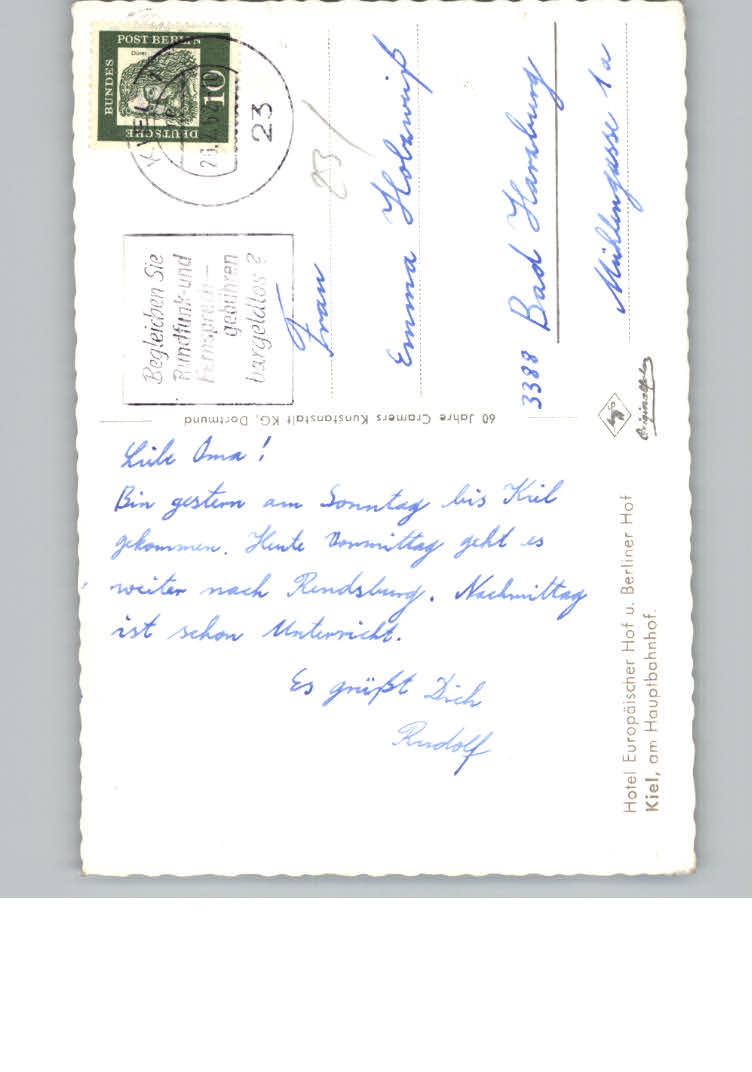 Liebe Oma!
Bin gestern am Sonntag bis Kiel
gekommen. Heute Vormittag geht es
weiter nach Rendsburg. Nachmittag
ist schon Unterricht.
Es grüßt Dich
Rudolf
DEUTSCHE
BUNDES
POST BERLIN
Dürer
10
KIEL
23
Begleichen Sie
Rundfunk-und
Fernsprech-
gebühren
bargeldlos?
23/
Frau
Emma Holzweiß
3388 Bad Harzburg
Mühlengasse 1a
60 Jahre Cramers Kunstanstalt KG, Dortmund
Originalfoto
Hotel Europäischer Hof u. Berliner Hof
Kiel, am Hauptbahnhof.